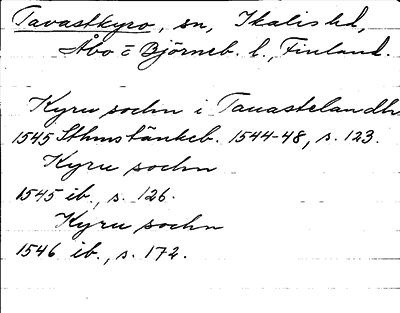 Tavastkyro, sn, Ikalis hd,
Åbo o Björneb. l., Finland.
Kyru sochn i Tauastelandh
1545 Sthms tänkeb. 1544-48, s. 123.
Kyru sochn
1545 ib., s. 126.
Kyru sochn
1546 ib., s. 172.